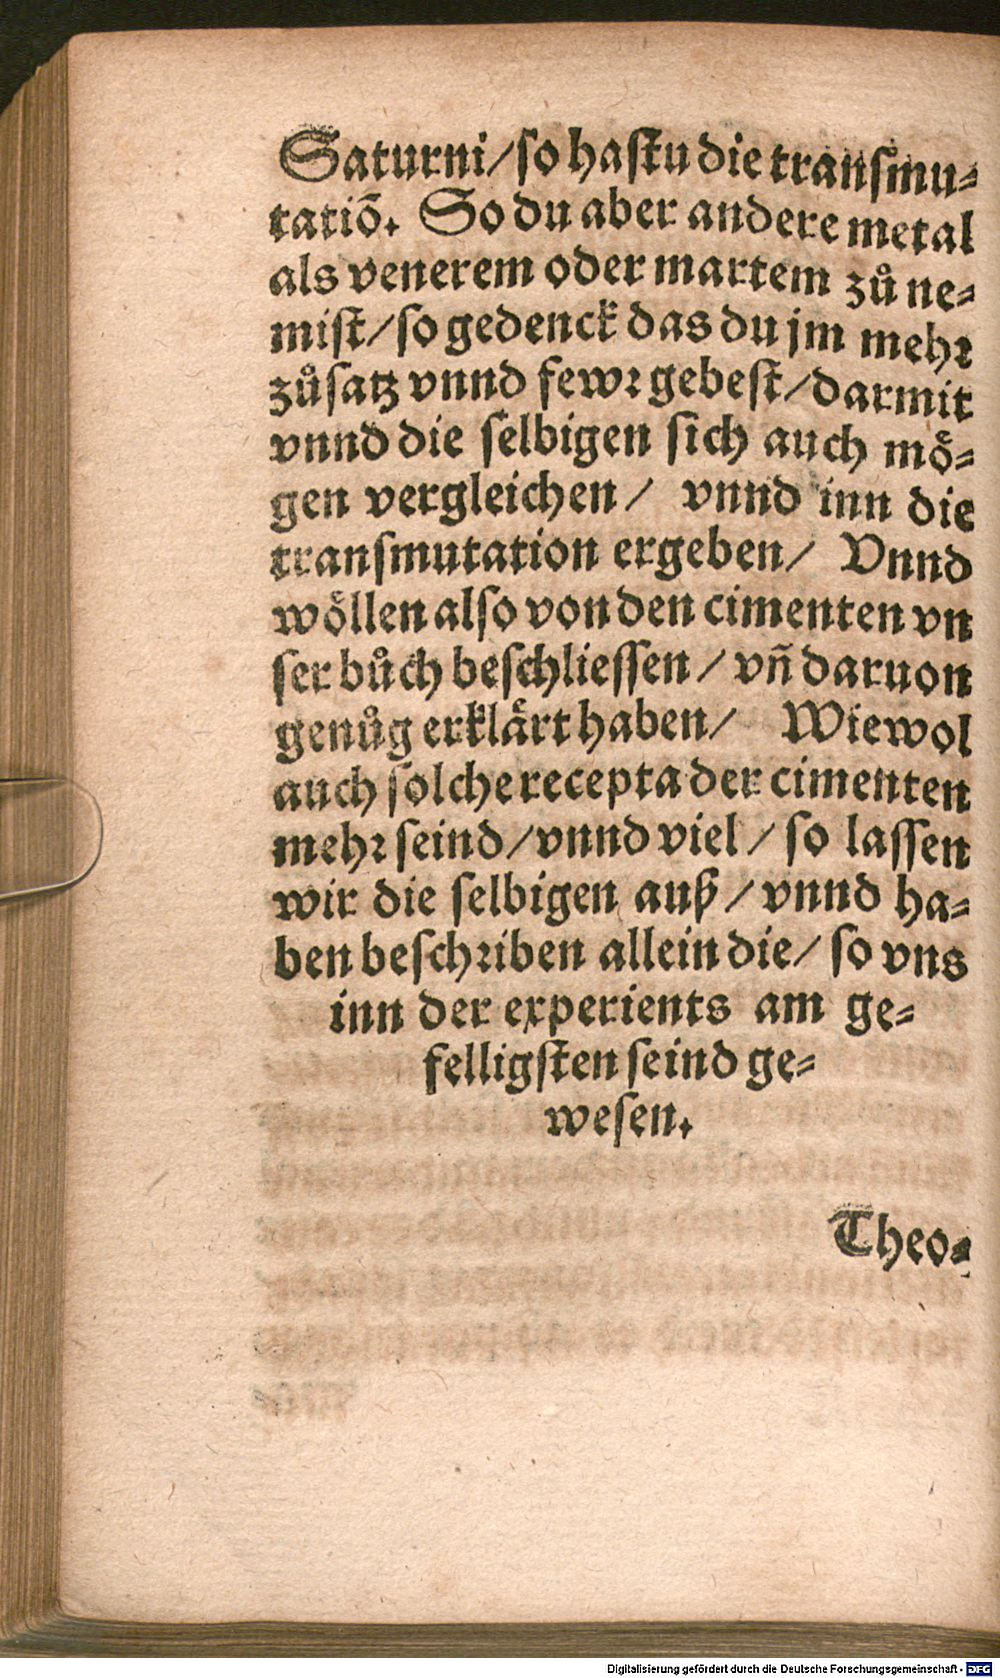 Saturni/so hastu die transmu⸗
tatiõ. So du aber andere metal
als venerem oder martem zů ne⸗
mist/so gedenck das du jm mehr
zůsatz vnnd fewr gebest/darmit
vnnd die selbigen sich auch moͤ⸗
gen vergleichen/ vnnd inn die
transmutation ergeben/ Vnnd
woͤllen also von den cimenten vn
ser bůch beschliessen/ vñ daruon
genůg erklaͤrt haben/ Wiewol
auch solche recepta der cimenten
mehr seind/vnnd viel/ so lassen
wir die selbigen auß/ vnnd ha⸗
ben beschriben allein die/ so vns
inn der experients am ge⸗
felligsten seind ge⸗
wesen.
Theo⸗
Digitalisierung gefördert durch die Deutsche Forschungsgemeinschaft - DFG